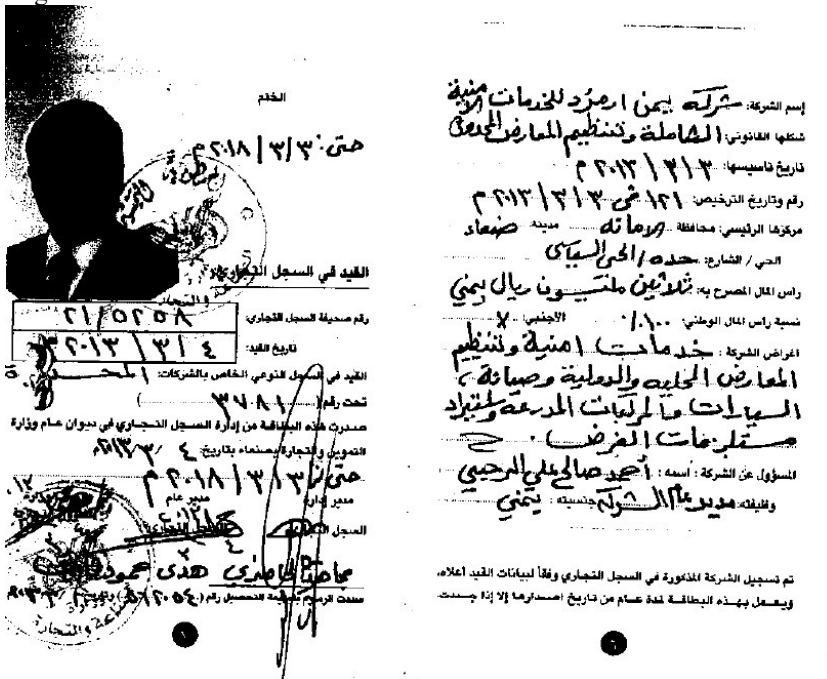 إسم الشركة: شركة يمن ارمرد للخدمات الامنية
شكلها القانوني: الشاملة وتنظيم المعارض المحدودة
تاريخ تاسيسها: ٣ / ٣ / ٢٠١٣ م
رقم وتاريخ الترخيص: ١٢١ في ٣ / ٣ / ٢٠١٣ م
مركزها الرئيسي: محافظة الامانة مدينة صنعاء
الحي / الشارع: حده / الحي السياسي
راس المال المصرح به: ثلاثين مليون ريال يمني
نسبة راس المال الوطني: ١٠٠٪ الأجنبي: X
اغراض الشركة: خدمات امنية وتنظيم
المعارض المحلية والدولية وصيانة
السيارات والمركبات المدرعة واستيراد
مستلزمات الغرض.
المسؤول عن الشركة: اسمه: أحمد صالح علي الرحبي
وظيفته: مدير عام الشركة جنسيته: يمني
تم تسجيل الشركة المذكورة في السجل التجاري وفقاً لبيانات القيد أعلاه،
ويعمل بهذه البطاقة لمدة عام من تاريخ اصدارها إلا إذا جددت.
٦
الختم
حتى: ٣ / ٣ / ٢٠١٨ م
القيد في السجل التجاري
رقم صحيفة السجل التجاري: ٢١/٥٢٥٨
تاريخ القيد: ٤ / ٣ / ٢٠١٣ م
القيد في السجل النوعي الخاص بالشركات:
تحت رقم ( ٣٧٨١ )
صدرت هذه البطاقة من إدارة السجل التجاري في ديوان عام وزارة
التموين والتجارة بصنعاء بتاريخ ٤ / ٣ / ٢٠١٣م
حتى ٣ / ٣ / ٢٠١٨ م
مدير إدارة مدير عام
السجل التجاري
هدى حمود
سددت الرسوم بقسيمة التحصيل رقم